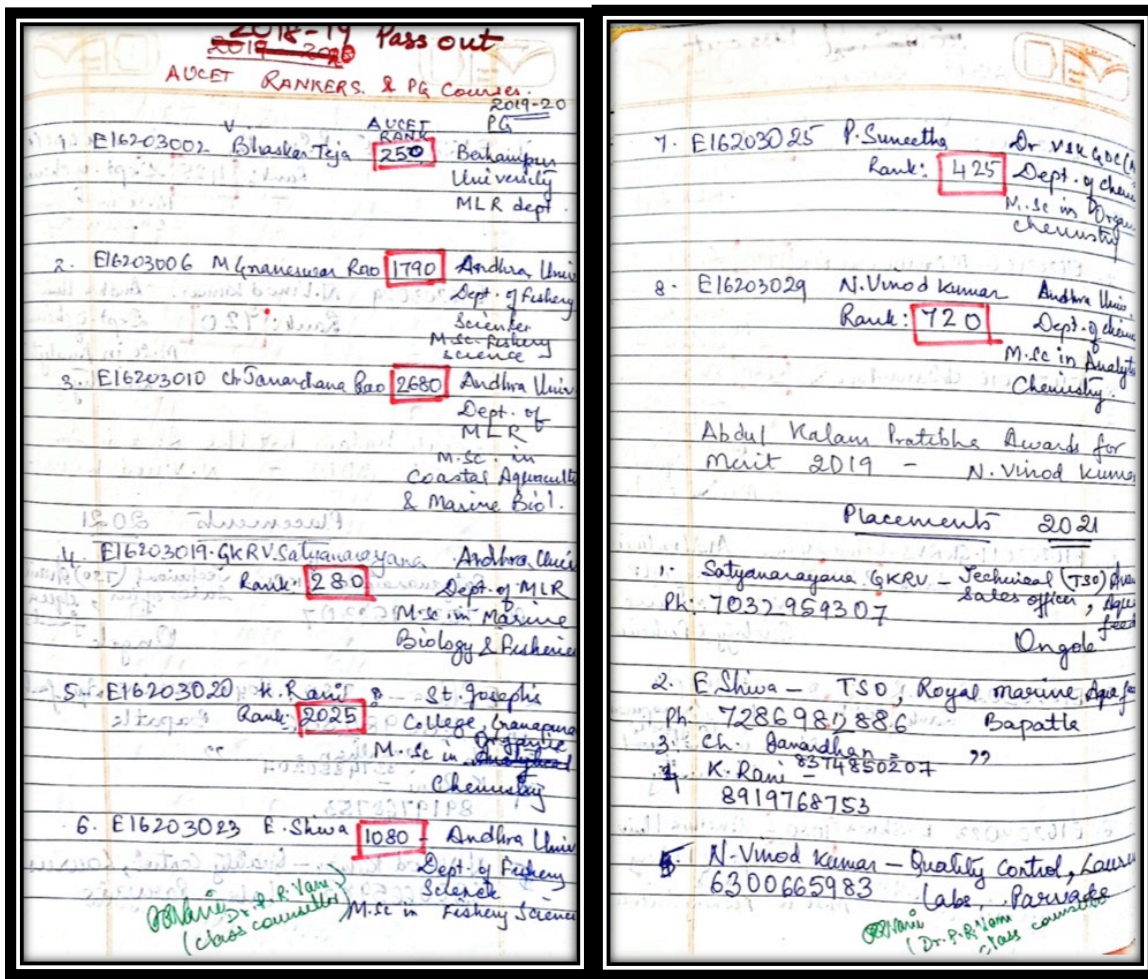 2018-19 Pass out
2019-2020
AUCET RANKERS & PG Courses.
2019-20
AUCET RANK PG
1. E16203002 V. Bhaskar Teja 250 Berhampur
University
MLR dept.
2. E16203006 M Gnaneswar Rao 1790 Andhra Univ
Dept. of Fishery
Science
M.Sc. fishery
science
3. E16203010 Ch Janardhana Rao 2680 Andhra Univ
Dept. of
MLR
M.Sc. in
Coastal Aquacult
& Marine Biol.
4. E16203019. GKRV. Satyanarayana Andhra Univ
Rank: 280 Dept. of MLR
M.Sc in Marine
Biology & Fisherie
5. E16203020 K. Rani St. Joseph's
Rank: 2025 College,
Organic
M.Sc in Analytical
Chemistry
6. E16203023 E. Shiva 1080 - Andhra Univ
Dept. of Fishery
Science
M.Sc in Fishery Science
Dr. P.R. Vani
(class counsellor)
7. E16203025 P. Suneetha Dr VSK GDC (A
Rank: 425 Dept. of chem
M.Sc in Organ
chemistry
8. E16203029 N. Vinod Kumar Andhra Univ
Rank: 720 Dept. of chem
M.Sc in Analyt
Chemistry.
Abdul Kalam Pratibha Awards for
Merit 2019 - N. Vinod Kumar
Placements 2021
1. Satyanarayana GKRV - Technical (TSO)
Sales officer, Aqua
feed
Ph: 7032959307
Ongole
2. E. Shiva - TSO, Royal marine, Aqua fe
Ph 7286982886 Bapatla
3. Ch. Janardhan - "
8374850207
4. K. Rani -
8919768753
5. N. Vinod Kumar - Quality Control, Laurus
6300665983 Labs, Parvada
(Dr. P.R. Vani
class counsellor